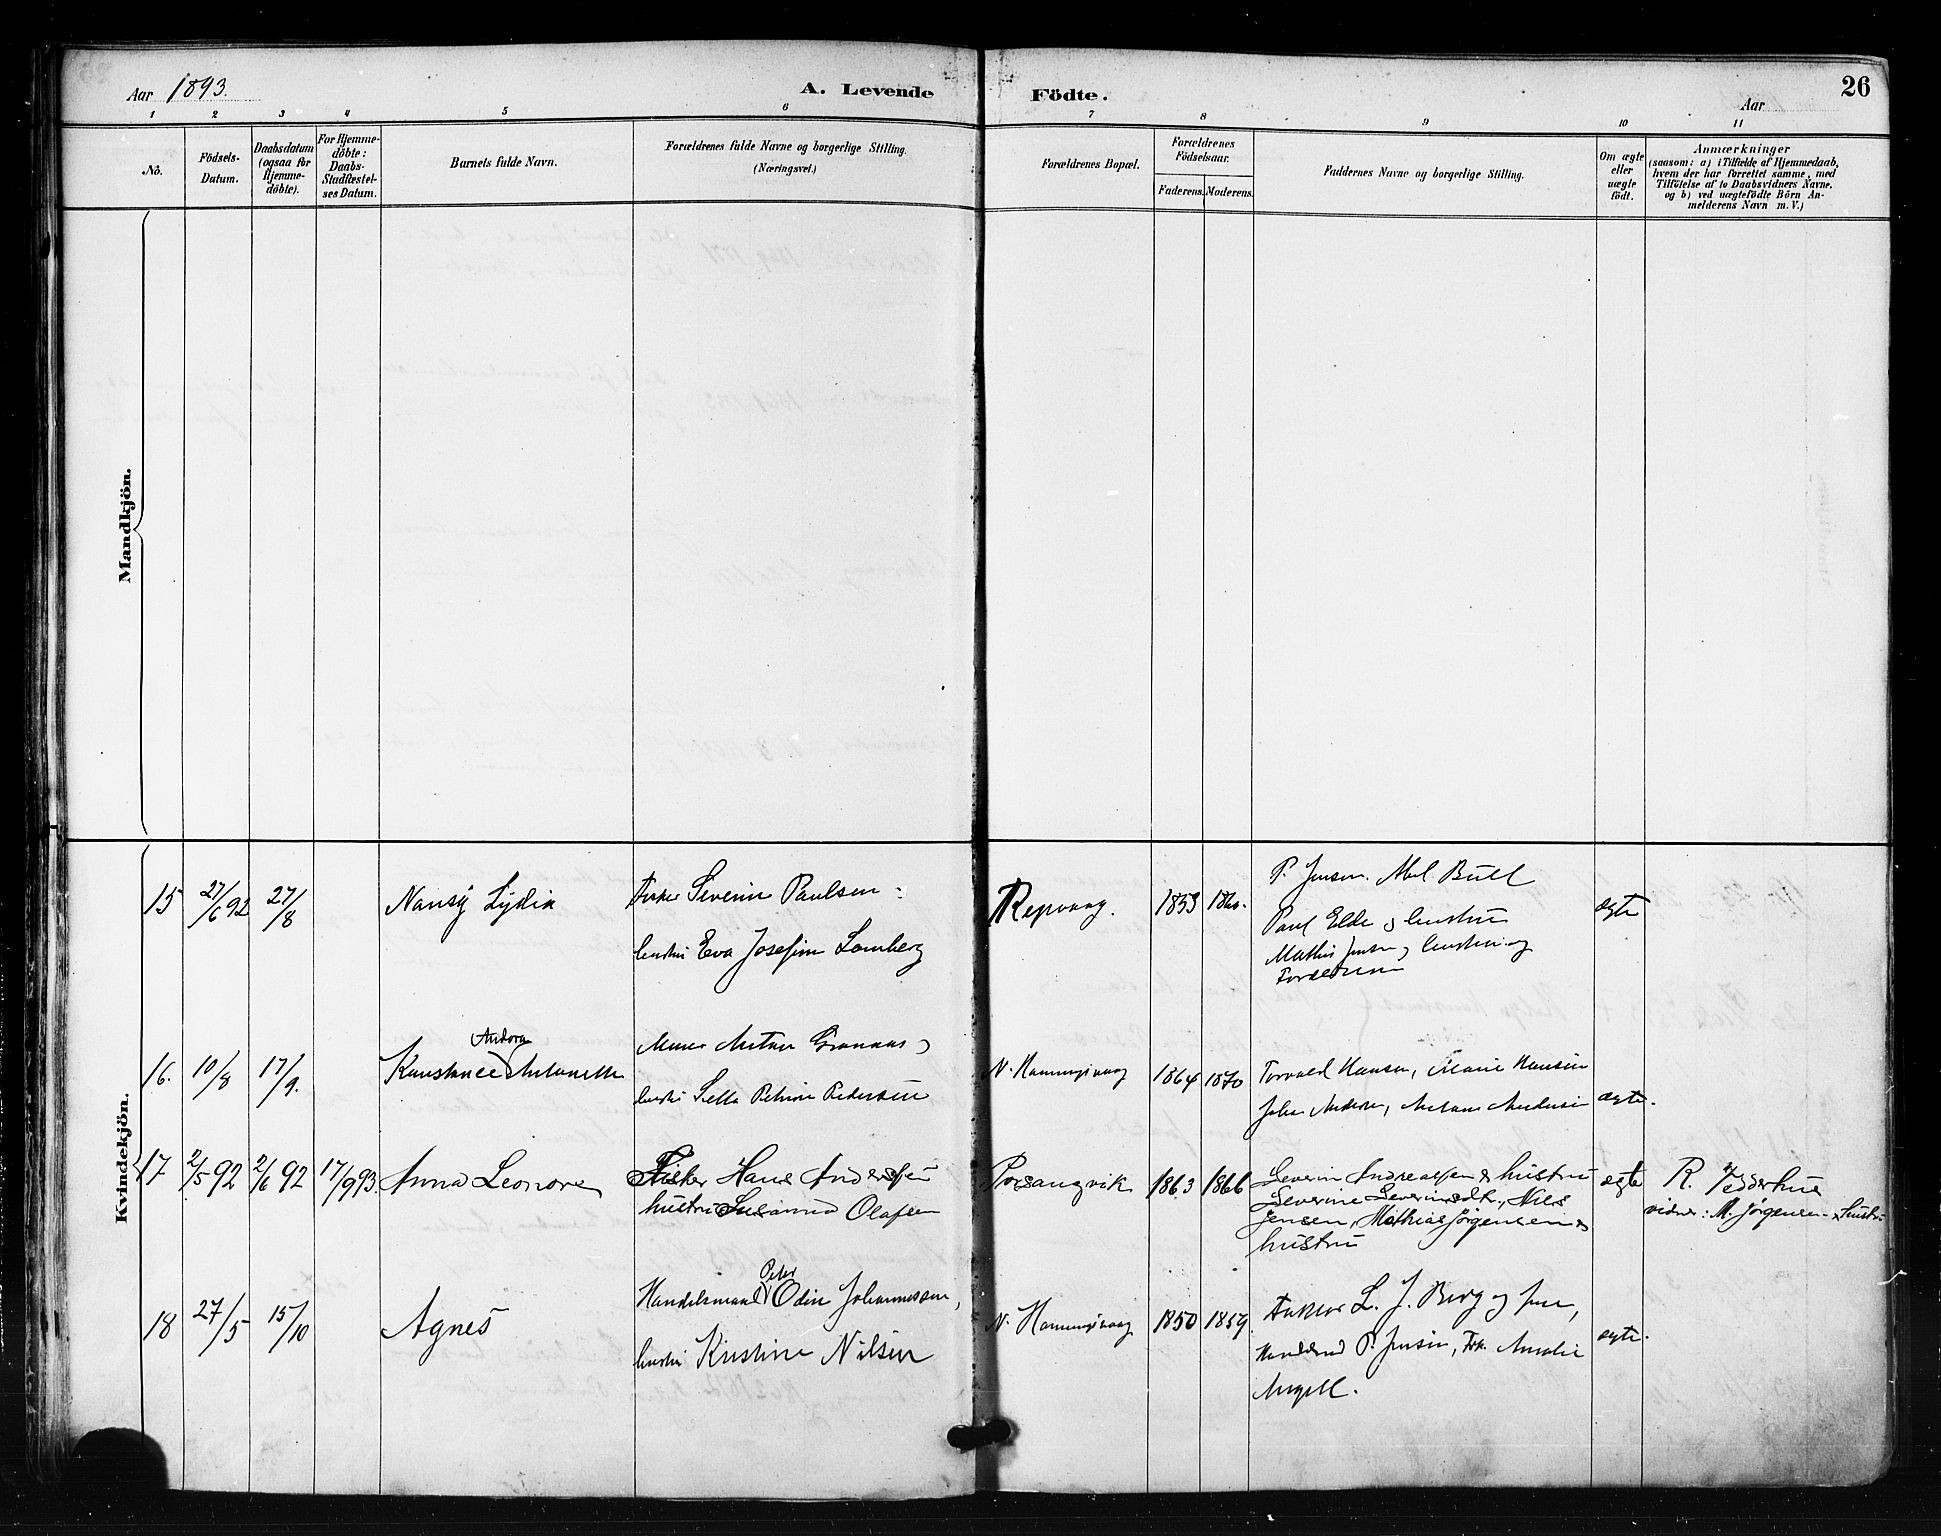 Aar 1893.
A. Levende Födte.
Aar
26
1 2 3 4 5 6 7 8 9 10 11
No.
Födsels-Datum.
Daabsdatum (ogsaa for Hjemme-döbte).
For Hjemme-döbte: Daabs-Stadfæstel-ses Datum.
Barnets fulde Navn.
Forældrenes fulde Navne og borgerlige Stilling.
(Næringsvei.)
Forældrenes Bopæl.
Forældrenes Födselsaar.
Faderens. Moderens.
Faddernes Navne og borgerlige Stilling.
Om ægte eller uægte födt.
Anmærkninger
(saasom: a) i Tilfælde af Hjemmedaab,
hvem der har forrettet samme, med
Tilföielse af to Daabsvidners Navne.
og b) ved uægtefödte Börn An-
melderens Navn m. V.)
Mandkjön.
Kvindekjön.
15 27/6 92 27/8 Nansy Lydia
Fisker Severin Paulsen
hustru Eva Josefine Lomberg
Repvaag. 1853 1860.
P. Jensen. Abel Bull
Paul Elde og hustru
Mathis Jensen og hustru og
Forældrene
ægte
16. 10/8 17/9. Konstance Andora Antonette
Anton Grønaas og
hustru Petrine Pedersen
N. Honningsvaag 1864 1870
Torvald Hansen, Marie Hansen
Johan Andersen,
ægte.
17 2/5 92 2/6 92 17/9 93. Anna Leonora
Fisker Hans Anderssen
hustru Susanna Olafsen
Porsangvik 1863 1866
Severin Andreassen & hustru
Severine Severinsdtr., Niels
Jensen, Mathias Jörgensen &
hustru
ægte
R. Vedderhus
vidner: M. Jørgensen & Hustru
18 27/5 15/10 Agnes
Handelsmand Peter Odin Johannessen,
hustru Kristine Nilsen
N. Honningsvaag 1850 1859
L. J. Berg og frue,
P. Jensen, Frk. Amalie
Angell.
ægte.